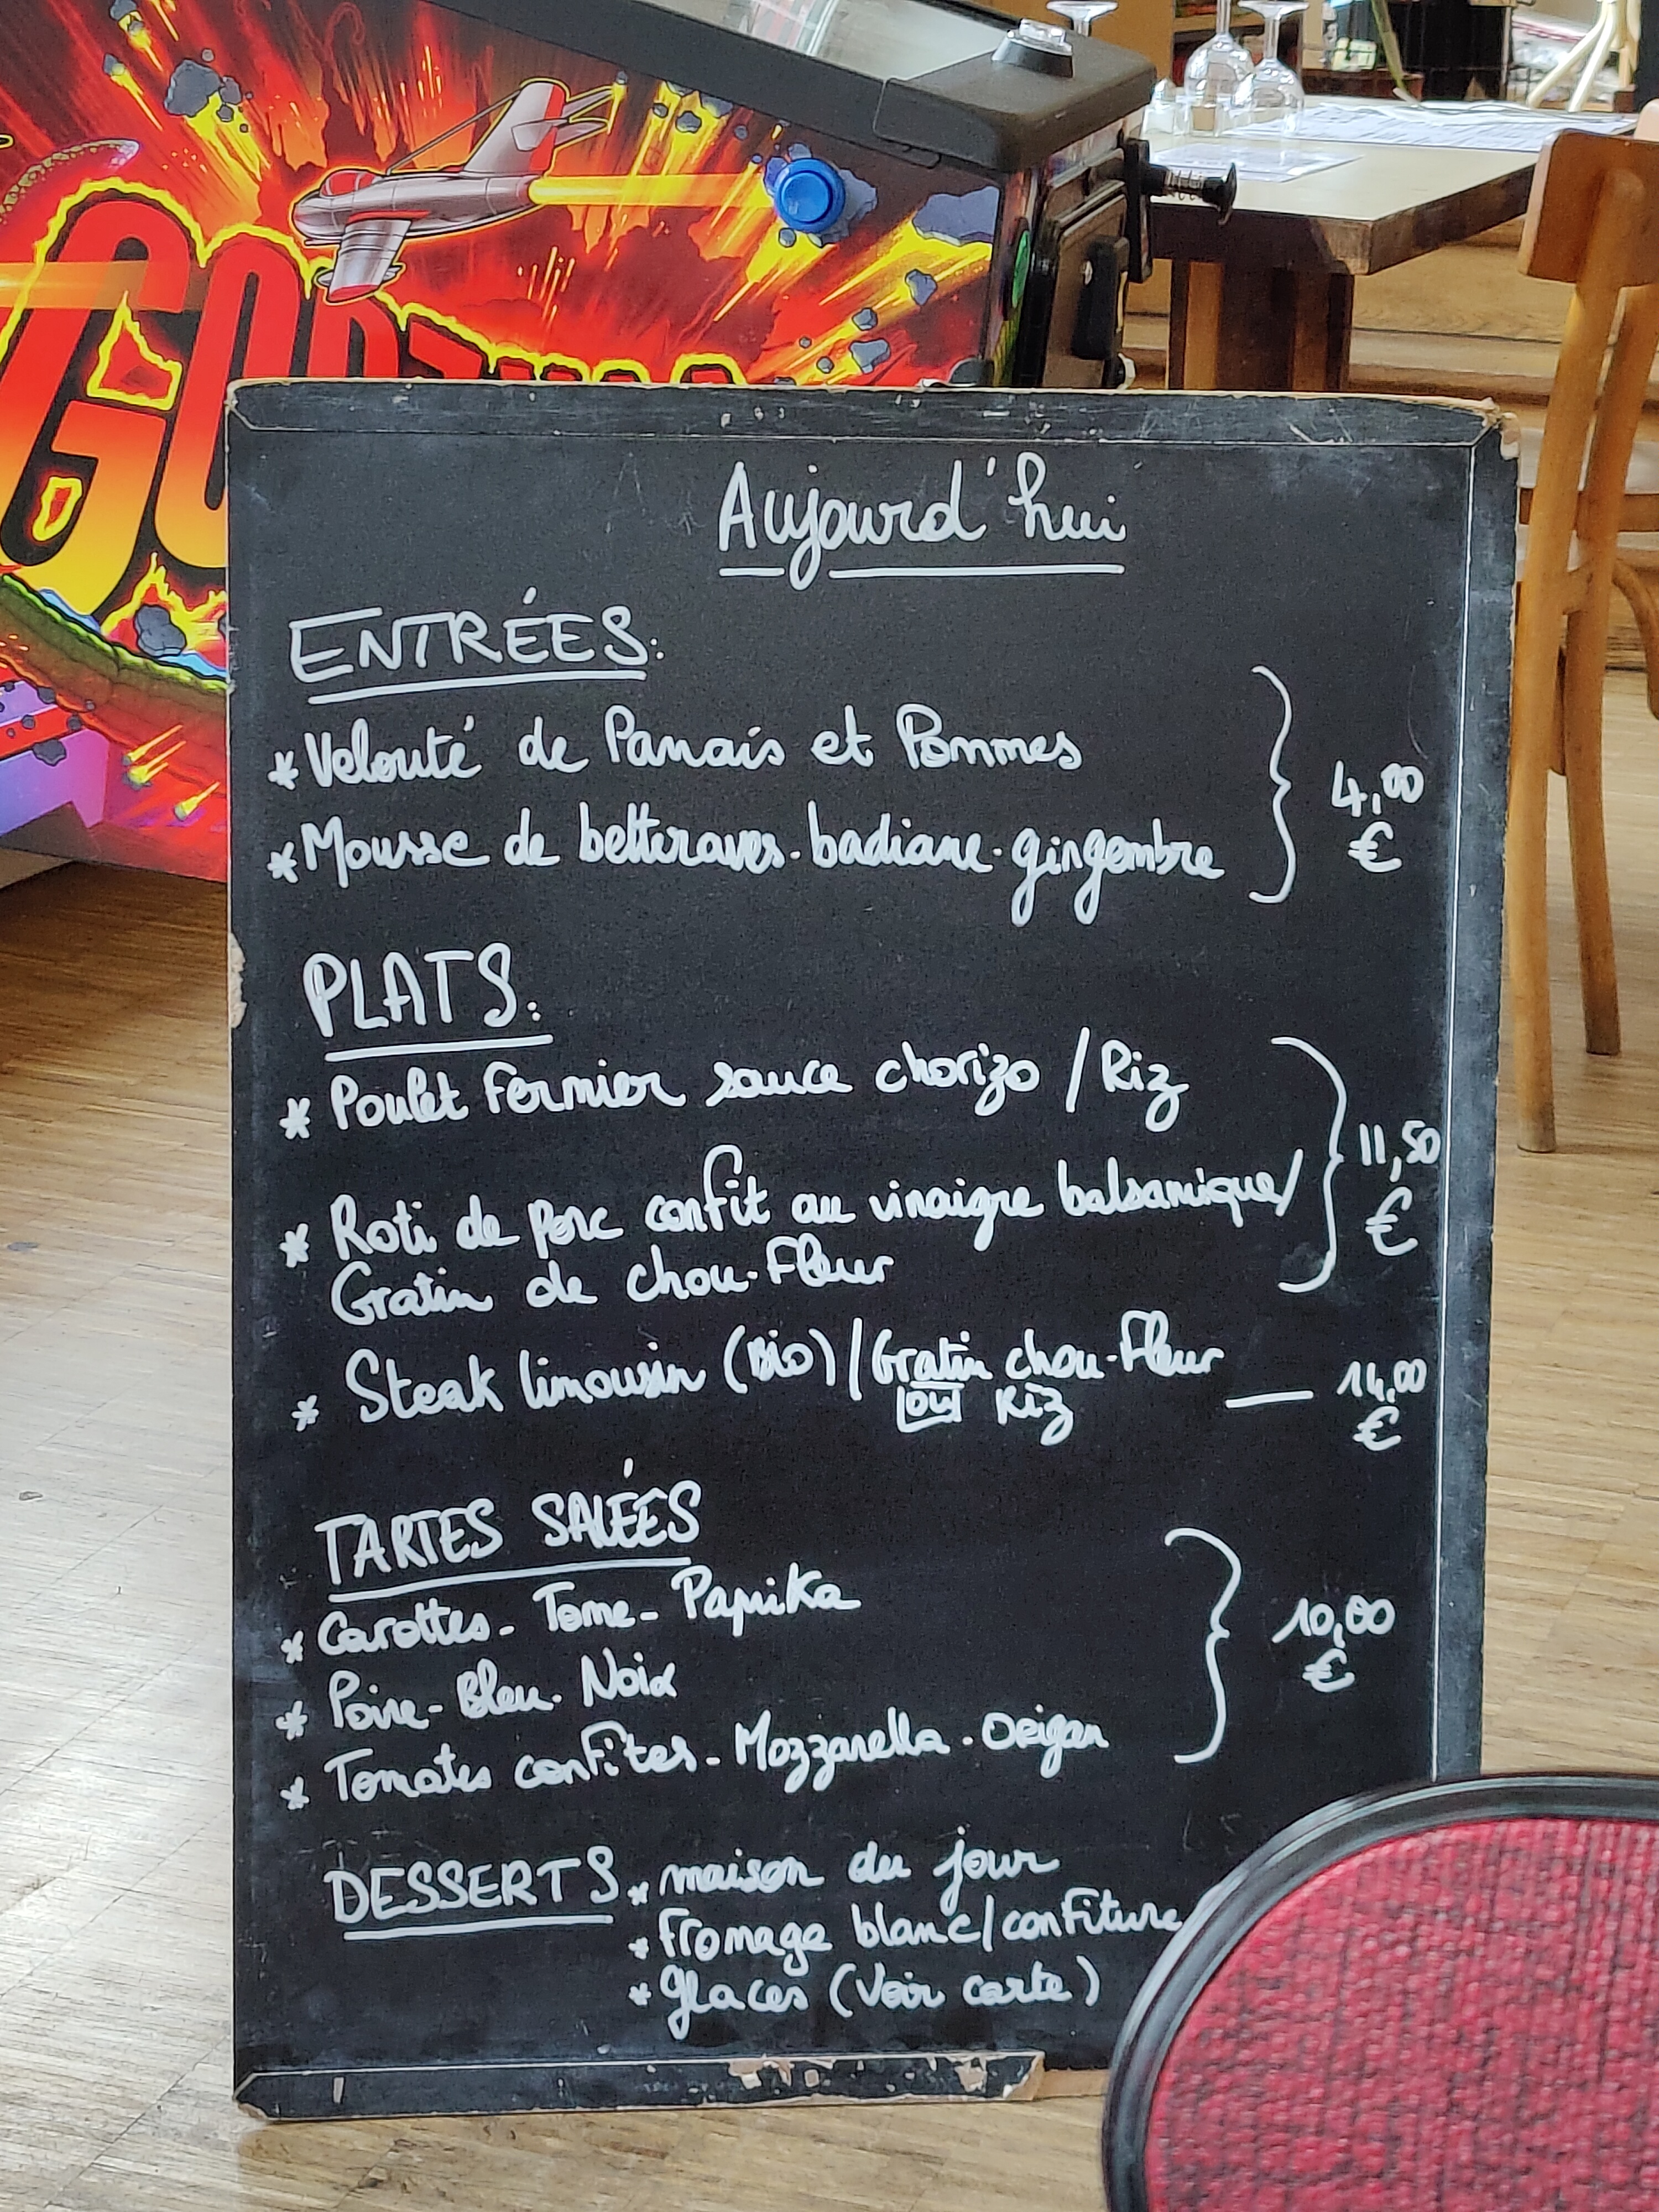 GODZILLA
Aujourd'hui
ENTRÉES:
* Velouté de Panais et Pommes
* Mousse de betteraves - badiane - gingembre
4,00
€
PLATS:
* Poulet Fermier sauce chorizo / Riz
* Roti de porc confit au vinaigre balsamique/
Gratin de chou-Fleur
11,50
€
* Steak limousin (Bio) / Gratin chou-Fleur
ou Riz
— 14,00
€
TARTES SALÉES
* Carottes - Tome - Paprika
* Poire - Bleu - Noix
* Tomates confites - Mozzarella - Origan
10,00
€
DESSERTS * maison du jour
* Fromage blanc/confiture
* glaces (Voir carte)